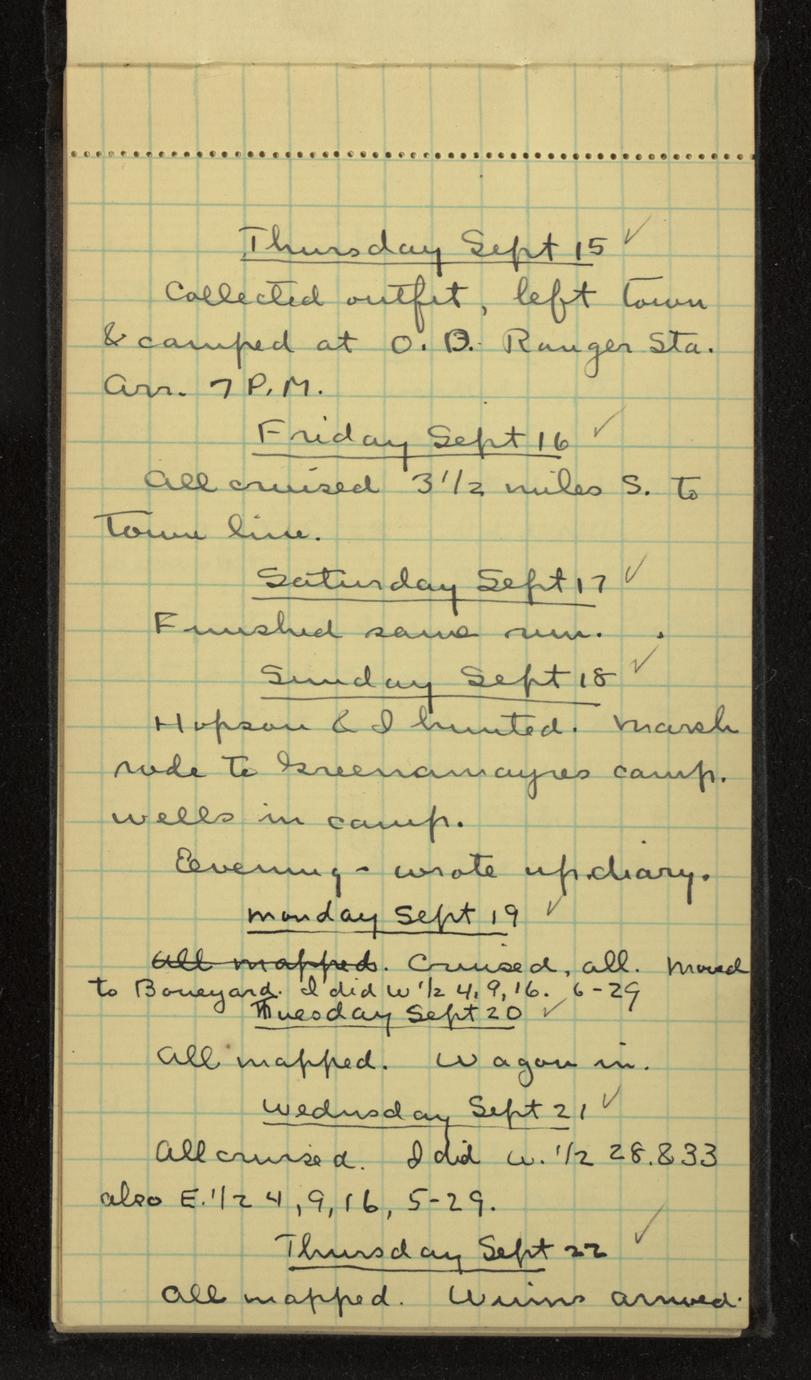 Thursday Sept 15 ✓
Collected outfit, left town
& camped at O. D. Ranger Sta.
Arr. 7 P.M.
Friday Sept 16 ✓
All cruised 3 1/2 miles S. to
Town line.
Saturday Sept 17 ✓
Finished same run.
Sunday Sept 18 ✓
Hopson & I hunted. Marsh
rode to Greenamayres camp.
Wells in camp.
Eevening - wrote up diary.
Monday Sept 19 ✓
All mapped. Cruised, all. Moved
to Boneyard. I did W 1/2 4, 9, 16. 6-29
Tuesday Sept 20 ✓
All mapped. Wagon in.
Wednsday Sept 21 ✓
All cruised. I did W. 1/2 28.&33
also E. 1/2 4, 9, 16, 5-29.
Thursday Sept 22 ✓
All mapped. Winns arrived.